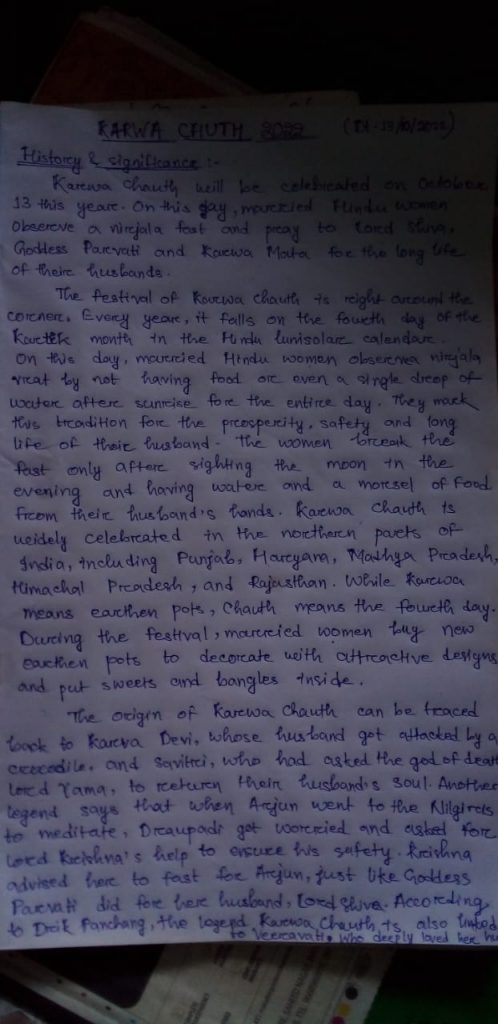 KARWA CHUTH 2022 (Dt - 13/10/2022)
History & significance :-
Karwa Chauth will be celebrated on October
13 this year. On this day, married Hindu women
observe a nirjala fast and pray to Lord Shiva,
Goddess Parvati and Karwa Mata for the long life
of their husbands.
The festival of Karwa Chauth is right around the
corner. Every year, it falls on the fourth day of the
Kartik month in the Hindu lunisolar calendar.
On this day, married Hindu women observe nirjala
vrat by not having food or even a single drop of
water after sunrise for the entire day. They mark
this tradition for the prosperity, safety and long
life of their husband. The women break the
fast only after sighting the moon in the
evening and having water and a morsel of food
from their husband's hands. Karwa Chauth is
widely celebrated in the northern parts of
India, including Punjab, Haryana, Madhya Pradesh,
Himachal Pradesh, and Rajasthan. While Karwa
means earthen pots, Chauth means the fourth day.
During the festival, married women buy new
earthen pots to decorate with attractive designs
and put sweets and bangles inside.
The origin of Karwa Chauth can be traced
back to Karva Devi, whose husband got attacked by a
crocodile, and Savitri, who had asked the god of death
Lord Yama, to return their husband's soul. Another
legend says that when Arjun went to the Nilgiris
to meditate, Draupadi got worried and asked for
Lord Krishna's help to ensure his safety. Krishna
advised her to fast for Arjun, just like Goddess
Parvati did for her husband, Lord Shiva. According
to Drik Panchang, the legend Karwa Chauth is also linked
to Veervati, who deeply loved her